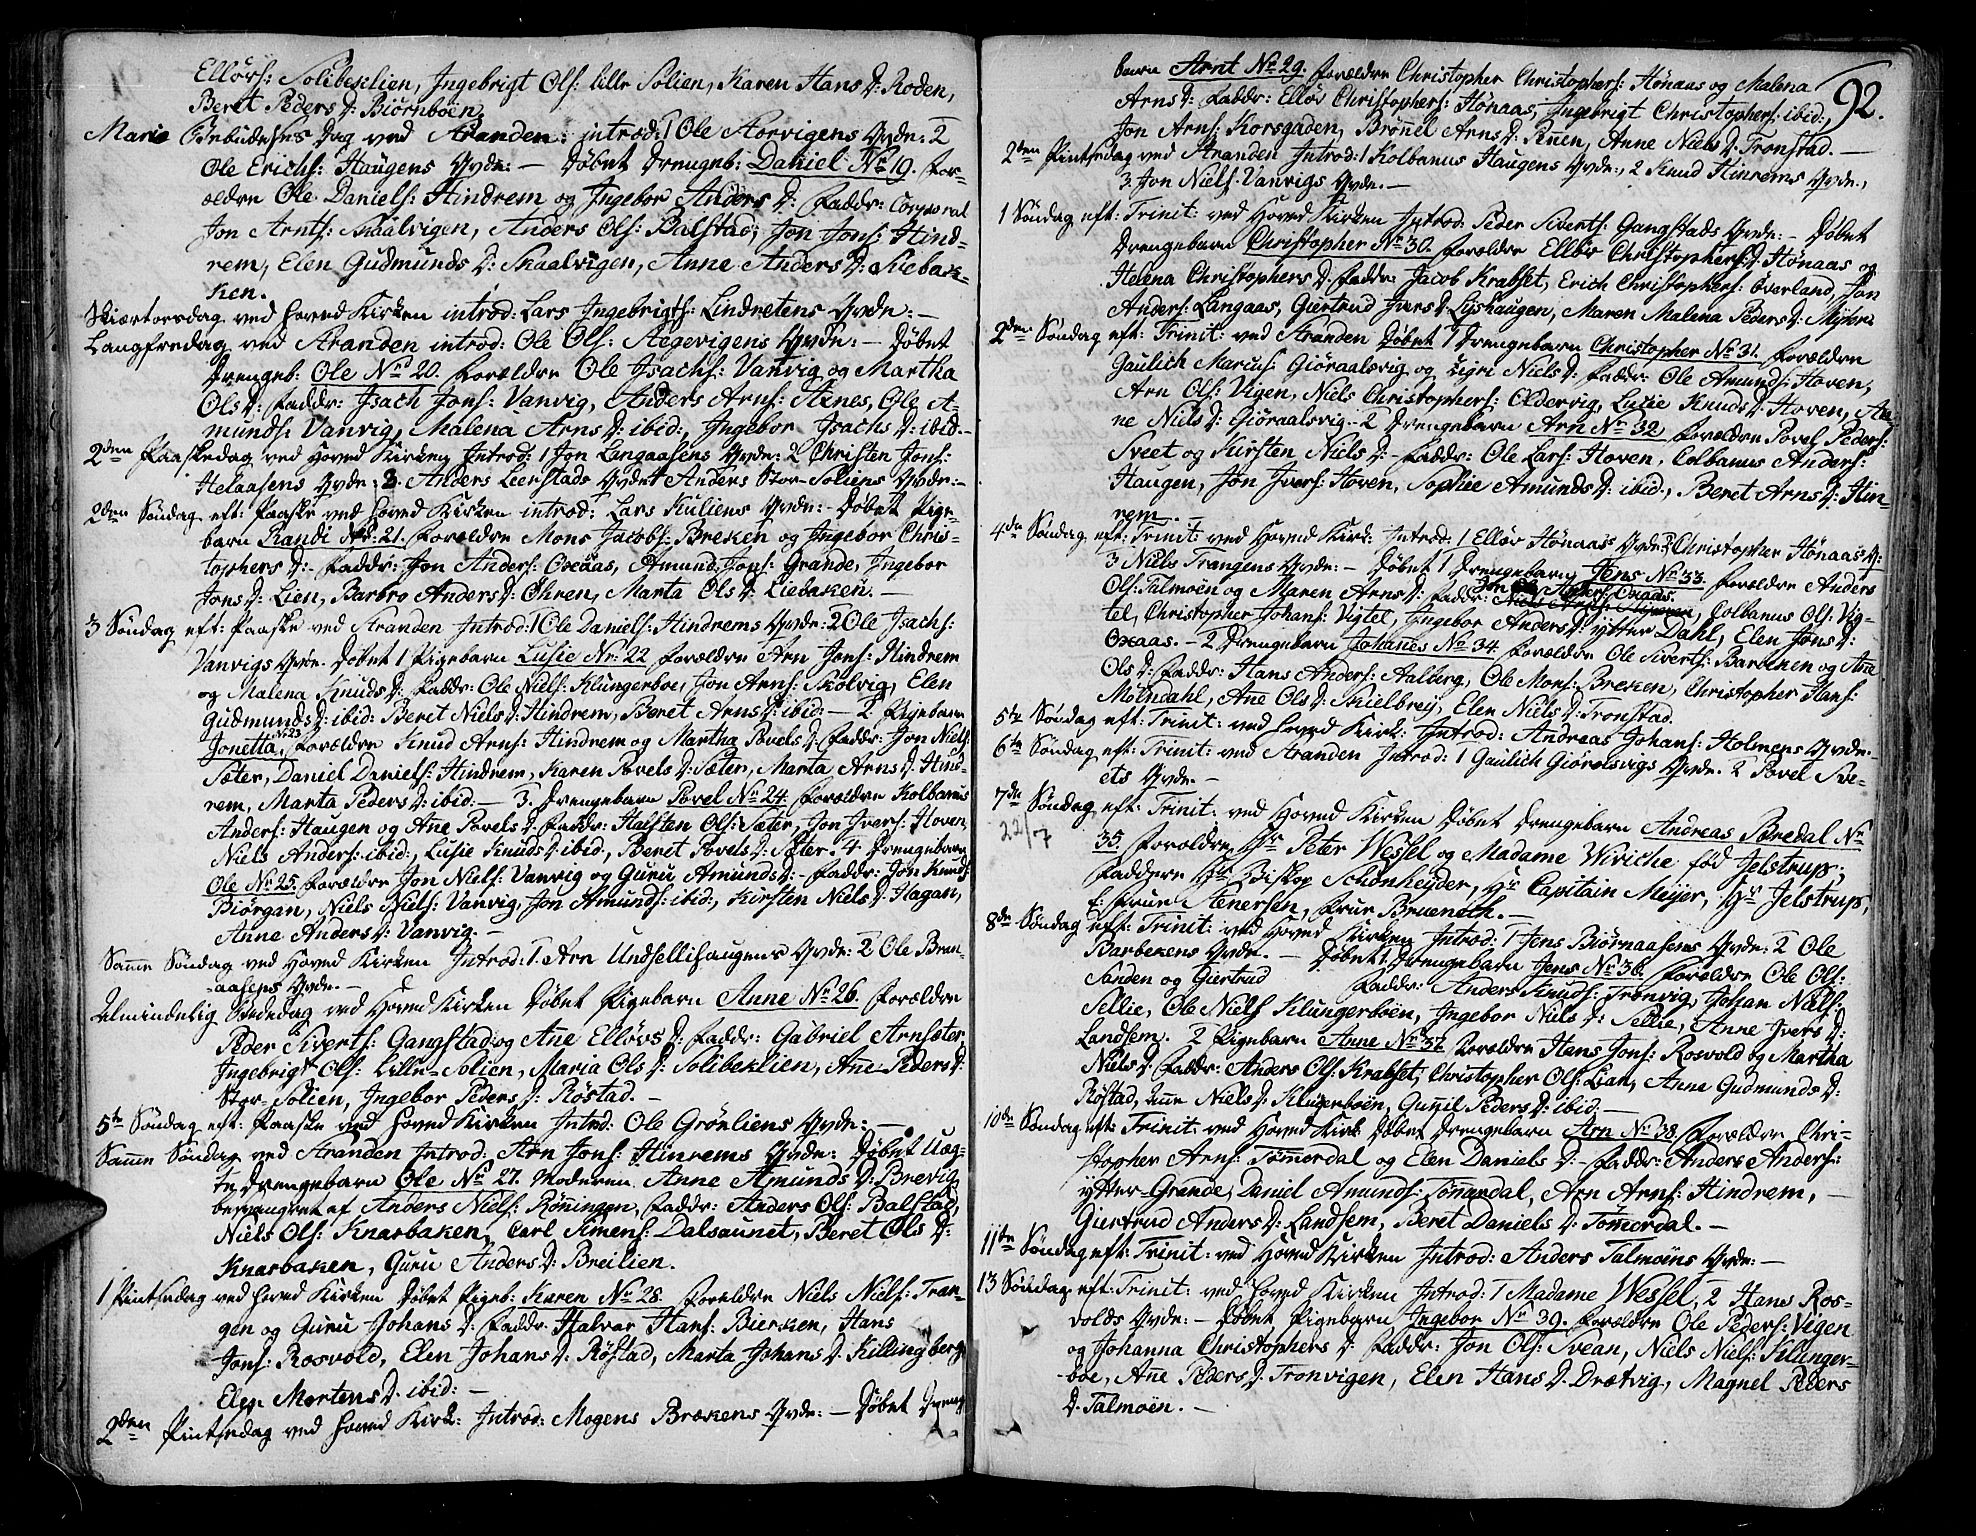 Ellørs: Solibeklien, Ingebrigt Ols: lille Solien, Karen Hans D: Roden,
Beret Peders D: Biørnboen.
Mariæ Bebudelses Dag ved Stranden introd: 1 Ole Storvigens Qvde: 2
Ole Erichs: Haugens Qvde: — Døbet Drengeb: Daniel No 19. For-
ældre Ole Daniels: Hindrem og Ingebor Anders D: Faddr: Corporal
Jon Arnts: Skaalvigen, Anders Ols: Balstad, Jon Jons: Hind-
rem, Elen Gudmunds D: Skaalvigen, Anne Anders D: Siebak-
ken.
Skiærtorsdag ved Hoved Kirken introd: Lars Ingebrigts: Lindretens Qvde: —
Langfredag ved Stranden introd: Ole Ols: Aegevigens Qvde: — Døbet
Drengeb: Ole No 20. Forældre Ole Isachs: Vanvig og Martha
Ols D: Faddr: Isach Jons: Vanvig, Anders Arns: Stines, Ole A-
munds: Vanvig, Malena Arns D: ibid:, Ingebor Isachs D: ibid. —
2den Paaskedag ved Hoved Kirken Introd: 1 Jon Langaasens Qvde: 2 Christen Jons:
Helaasens Qvde: 3. Anders Leerstads Qvde Anders Stor-Soliens Qvde: —
2den Søndag eft: Paaske ved Hoved Kirken introd: Lars Kuliens Qvde: — Døbet Pige-
barn Randi No: 21. Forældre Mons Jacobs: Breken og Ingebor Chris-
tophers D: — Faddr: Jon Anders: Oxaas, Amund Jons: Grande, Ingebor
Jons D: Lien, Barbro Anders D: Ohren, Marta Ols D: Liebaken. —
3 Søndag eft: Paaske ved Stranden Introd: 1 Ole Daniels: Hindrems Qvde: 2 Ole Isachs:
Vanvigs Qvde. Døbet 1 Pigebarn Lusie No: 22 Forældre Arn Jons: Hindrem
og Malena Knuds D: Faddr: Ole Niels: Klungerboe, Jon Arns: Skolvig, Elen
Gudmunds D: ibid: Beret Niels D: Hindrem, Beret Arns D: ibid: — 2 Pigebarn
Jonetta No 23. Forældre Knud Arns: Hindrem og Martha Povels D: Faddr: Jon Niels:
Sæter, Daniel Daniels: Hindrem, Karen Povels D: Sæter, Marta Arns D: Hind-
rem, Marta Peders D: ibid: — 3. Drengebarn Povel No 24. Forældre Kolbanus
Anders: Haugen og Ane Povels D: Faddr: Halsten Ols: Sæter, Jon Ivers: Hoven,
Niels Anders: ibid:, Lusie Knuds D: ibid, Beret Povels D: Sæter. 4 Drengebarn
Ole No 25. Forældre Jon Niels: Vanvig og Guru Amunds D: — Faddr: Jon Knuds:
Biørgan, Niels Niels: Vanvig, Jon Amunds: ibid:, Kirsten Niels D: Hagan,
Anne Anders D: Vanvig. —
Same Søndag ved Hoved Kirken Introd: 1. Arn Undsellishaugens Qvde: 2. Ole Bren-
aasens Qvde. —
Almindelig Bededag ved Hoved Kirken Døbet Pigebarn Anne No 26. Forældre
Peder Siverts: Gangstad og Ane Elløvs D: Faddr: Gabriel Arnsæter,
Ingebrigt Ols: Lille-Solien, Maria Ols D: Solibeklien, Ane Peders D:
Stor-Solien, Ingebor Peders D: Røstad. —
5te Søndag eft: Paaske ved Hoved Kirken Introd: Ole Grønliens Qvde: —
Same Søndag ved Stranden Introd: Arn Jons: Hinrems Qvde: Døbet Uæg-
te Drengebarn Ole No 27. Moderen Anne Amunds D: Brevig
besvangret af Anders Niels: Røningen, Faddr: Anders Ols: Balstad,
Niels Ols: Knarbaken, Carl Simens: Dalsaunet, Beret Ols D:
Knarbaken, Guru Anders D: Breilien.
1 Pintsedag ved Hoved Kirken Døbet Pigeb: Karen No 28. Forældre Niels Niels: Tran-
gen og Guru Johans D: Faddr: Halvar Hans: Bierken, Hans
Jons: Rosvold, Elen Johans D: Røstad, Marta Johans D: Killingberg
Elen Mortens D: ibid: —
2den Pintsedag ved Hoved Kirk: Introd: Mogens Brækens Qvde: — Døbet Dreng
92.
barn Arnt No 29. Forældre Christopher Christophers: Hønaas og Malena
Arns D: Faddr: Elløv Christophers: Hønaas, Ingebrigt Christophers: ibid:,
Jon Arns: Korsgaden, Brønel Arns D: Røen, Anne Niels D: Tronstad. —
2den Pintsedag ved Stranden Introd: 1 Kolbanus Haugens Qvde:, 2 Knud Hinrems Qvde:,
3. Jon Niels: Vanvigs Qvde. —
1 Søndag eft: Trinit: ved Hoved Kirken Introd: Peder Siverts: Gangstads Qvde: — Døbet
Drengebarn Christopher No 30. Forældre Elløv Christophers: Hønaas og
Helena Christophers D: Faddr: Jacob Krabset, Erich Christophers: Overland, Jon
Anders: Langaas, Giertrud Ivers D: Lyshaugen, Maren Malena Peders D: Myhre.
2den Søndag eft: Trinit: ved Stranden Døbet 1 Drengebarn Christopher No 31. Forældre
Gaulich Marius: Giøraalsvig og Sigri Niels D: Faddr: Ole Amunds: Hoven,
Arn Ols: Vigen, Niels Christophers: Oldervig, Lusie Knuds D: Hoven, An-
ne Niels D: Giøraalsvig. — 2 Drengebarn Arn No 32. Forældre Povel Peders:
Sveet og Kirsten Niels D: — Faddr: Ole Lars: Hoven, Colbanus Anders:
Haugen, Jon Ivers: Hoven, Sophie Amunds D: ibid:, Beret Arns D: Hin-
rem. —
4de Søndag eft: Trinit: ved Hoved Kirk: Introd: 1 Elløv Hønaas Qvde: 2 Christopher Hønaas Q:
3 Niels Trangens Qvde: — Døbet 1 Drengebarn Jens No 33. Forældre Anders
Ols: Talmoen og Maren Arns D: Faddr: Jon Anders: Oxaas, Colbanus Ols: Vig-
tel, Christopher Johans: Vigtel, Ingebor Anders D: ytter Dahl, Elen Jons D:
Oxaas. — 2 Drengebarn Johanes No 34. Forældre Ole Siverts: Barbeken og Ane
Ols D: Faddr: Hans Anders: Aalberg, Ole Mons: Breken, Christopher Hans:
Mølndahl, Ane Ols D: Skielbrey, Elen Niels D: Tronstad.
5te Søndag eft: Trinit: ved Hoved Kirk: Introd: Andreas Johans: Holmens Qvde.
6te Søndag eft: Trinit: ved Stranden Introd: 1 Gaulich Giøraalsvigs Qvde. 2 Povel Sve-
ets Qvde. —
7de Søndag eft: Trinit: ved Hoved Kirken Døbet Drengebarn Andreas Bredal No
22/7
35. Forældre Hr Peter Wessel og Madame Wiviche fød Jelstrup,
Faddere Hr Biskop Schønheyder, Hr Capitain Meyer, Hr Jelstrup,
f: Frue Stenersen, Frue Bruenech. —
8de Søndag eft: Trinit: ved Hoved Kirken Introd: 1 Jens Biørnaasens Qvde: 2 Ole
Barbekens Qvde. — Døbet 1 Drengebarn Jens No 36. Forældre Ole Ols:
Sanden og Giertrud Faddr: Anders Knuds: Tronvig, Johan Niels:
Sellie, Ole Niels Klungerboen, Ingebor Niels D: Sellie, Anne Ivers D:
Landsem. 2 Pigebarn Anne No 37. Forældre Hans Jons: Rosvold og Martha
Niels D: Faddr: Anders Ols: Krabset, Christopher Ols: Lian, Anne Gudmunds D:
Røstad, Ane Niels D: Klungerboen, Gunil Peders D: ibid. —
10de Søndag eft: Trinit: ved Hoved Kirk Døbet Drengebarn Arn No 38. Forældre Chri-
stopher Arns: Tømerdal og Elen Daniels D: — Faddr: Anders Anders:
ytter-Grande, Daniel Amunds: Tømerdal, Arn Arns: Hindrem, —
Giertrud Anders D: Landsem, Beret Daniels D: Tømerdal. —
11te Søndag eft: Trinit: ved Hoved Kirken Introd: Anders Talmoens Qvde: —
13 Søndag eft: Trinit: ved Hoved Kirken Introd: 1 Madame Wessel, 2 Hans Ros-
volds Qvde: — Døbet Pigebarn Ingebor No 39. Forældre Ole Peders: Vigen
og Johanna Christophers D: Faddr: Jon Ols: Svean, Niels Niels: Klunger-
boe, Ane Peders D: Tronvigen, Elen Hans D: Drætvig, Magnel Peders
D: Talmoen. —